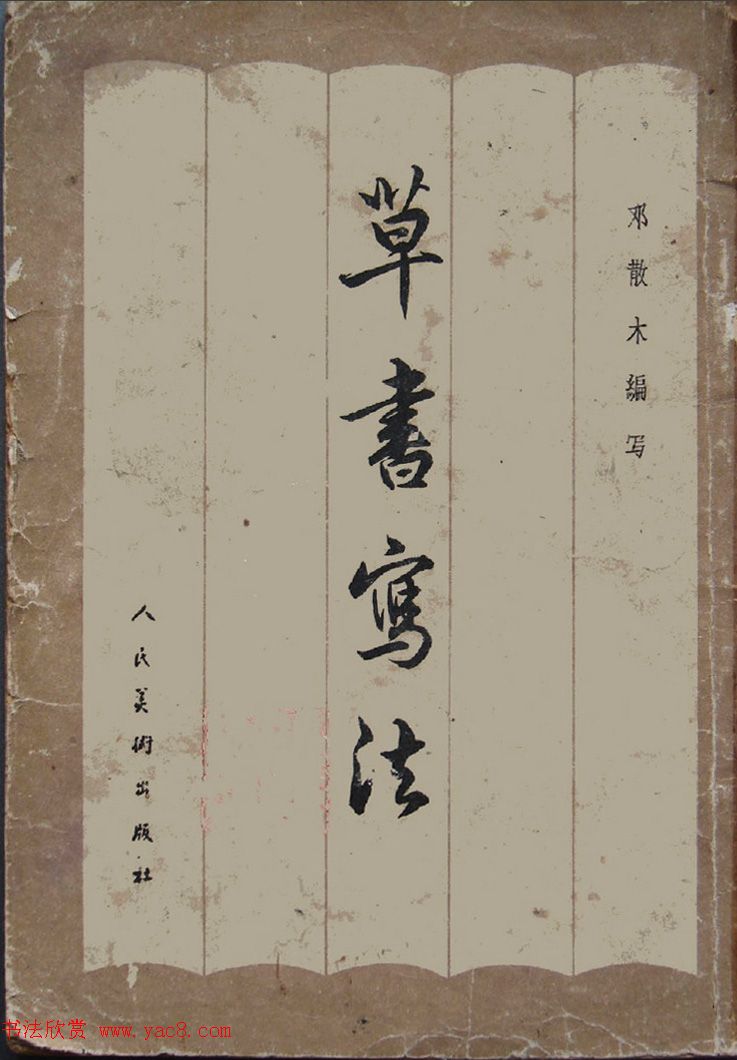 邓散木编写
草書寫法
人民美術出版社
书法欣赏 www.yac8.com